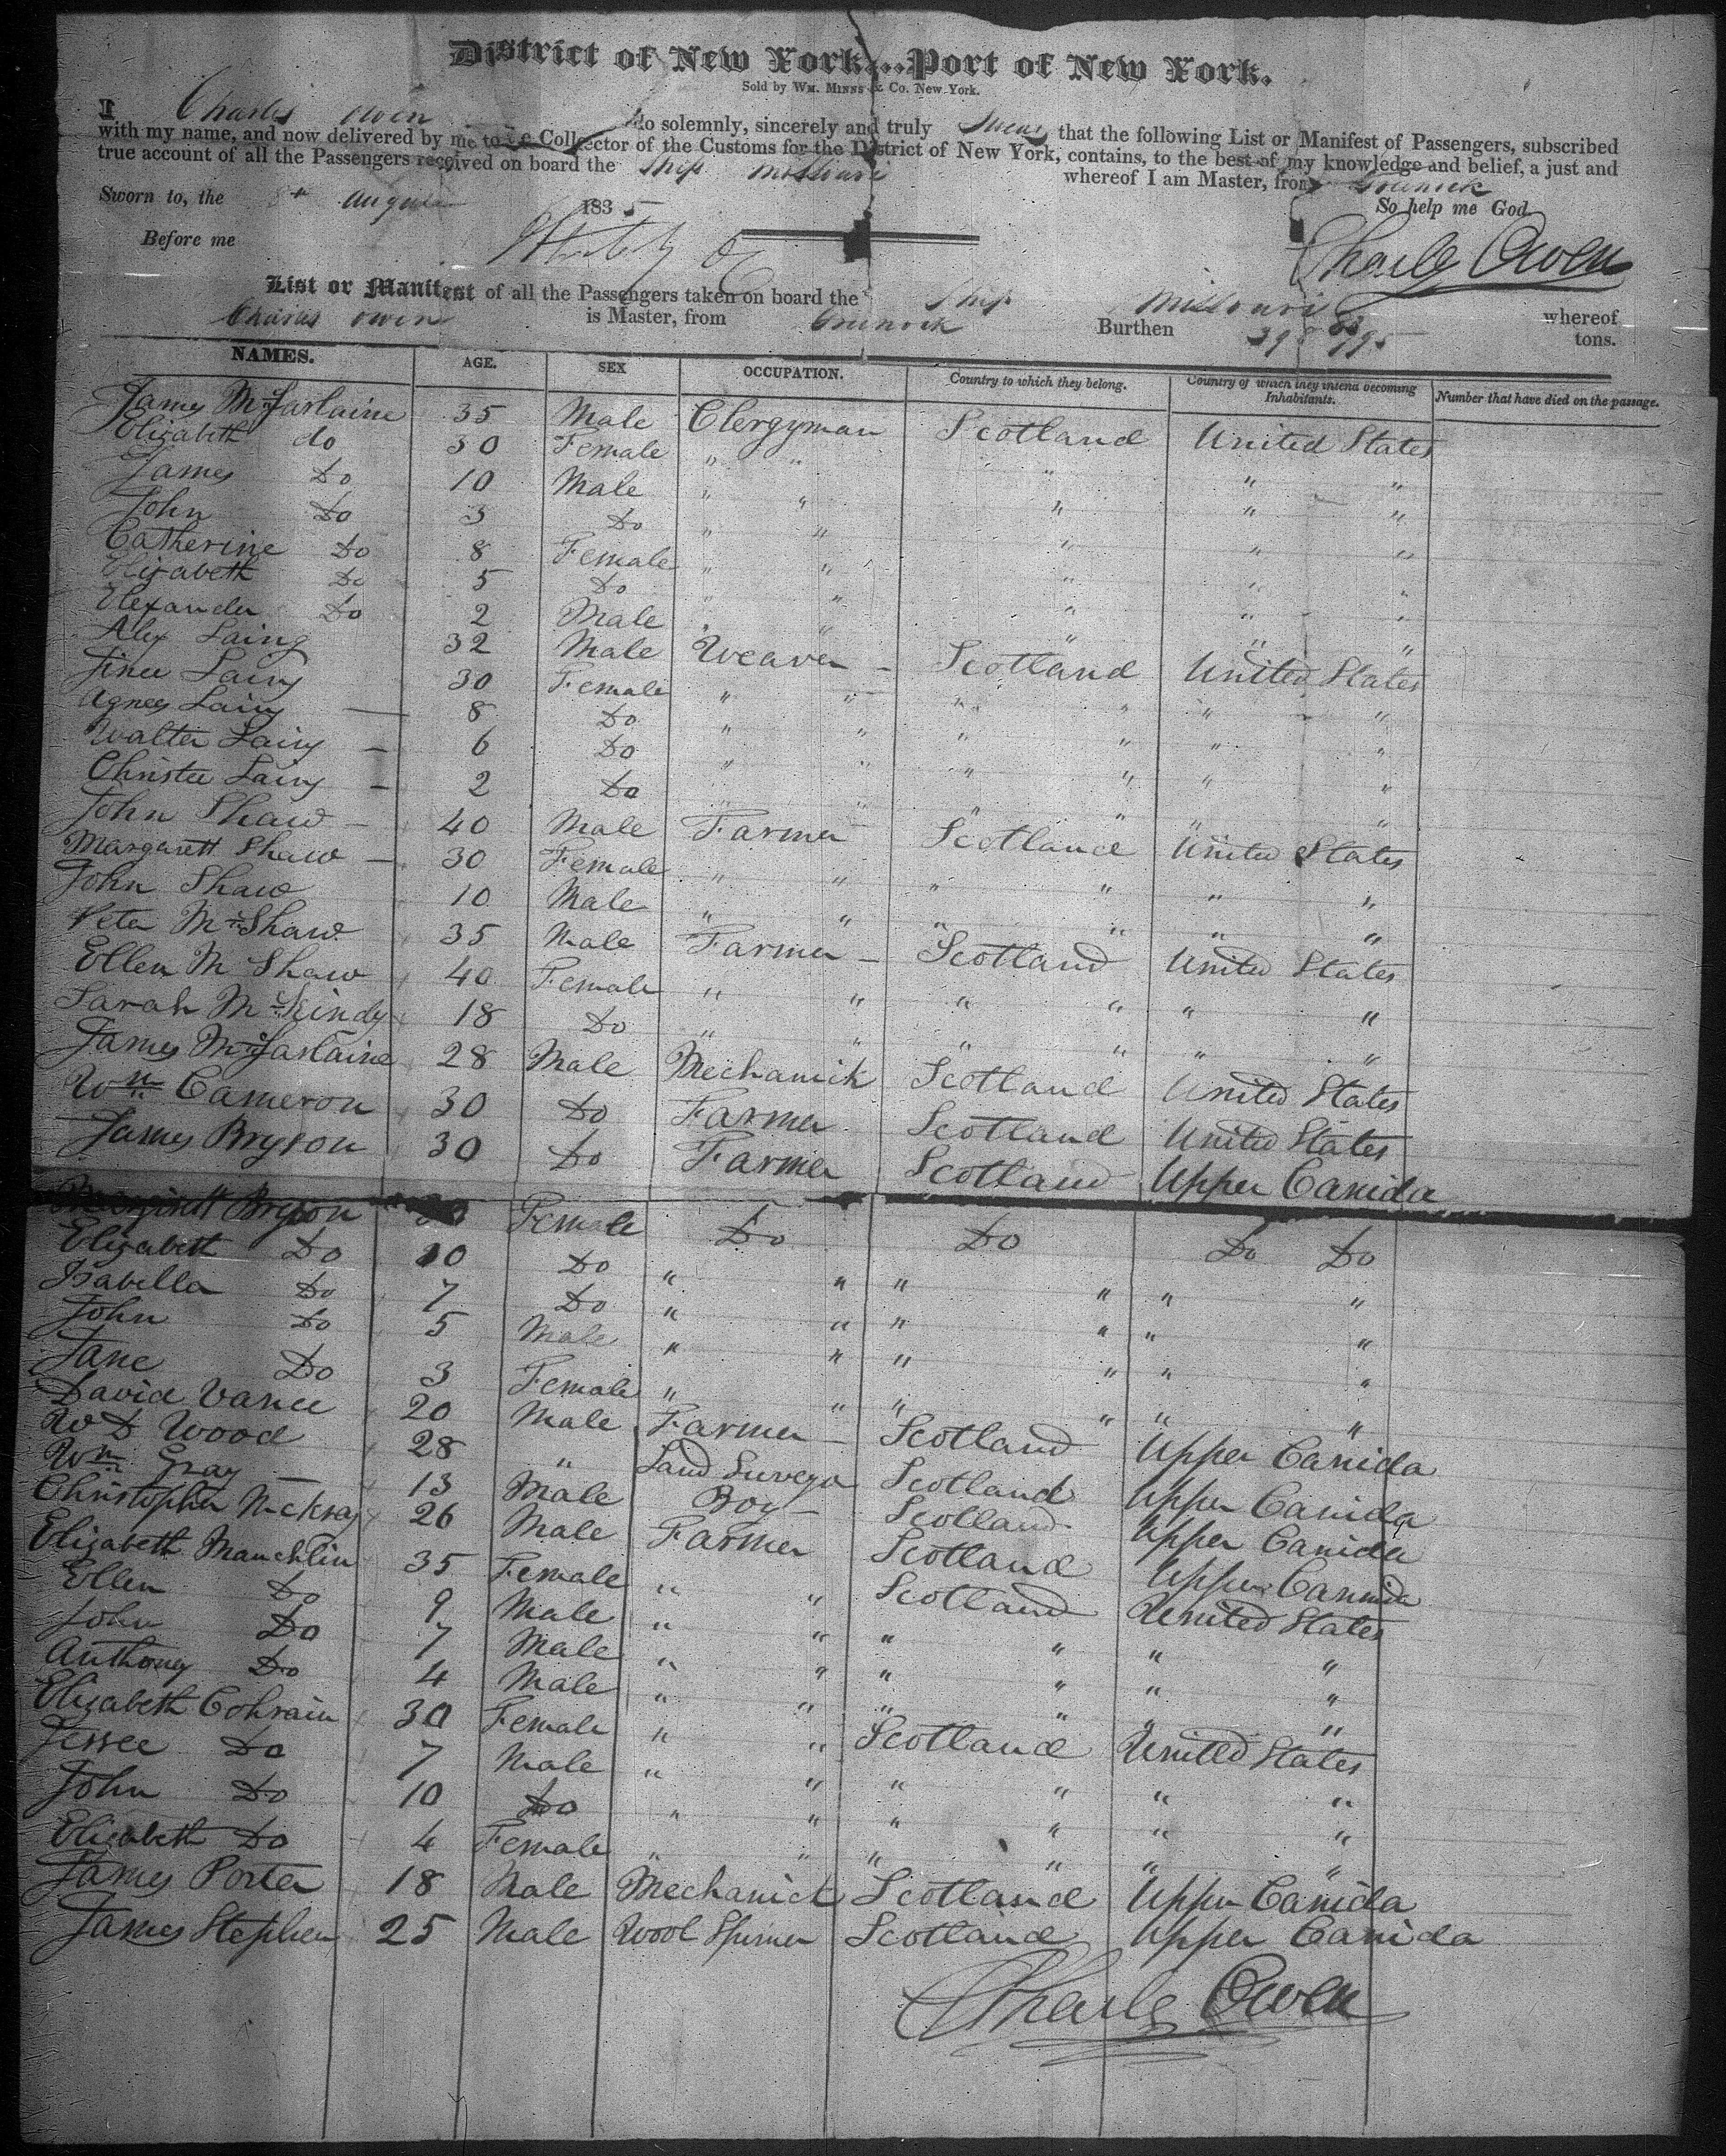 District of New York...Port of New York.
Sold by Wm. Minns & Co. New York.
I Charles Owen do solemnly, sincerely and truly Swear that the following List or Manifest of Passengers, subscribed
with my name, and now delivered by me to the Collector of the Customs for the District of New York, contains, to the best of my knowledge and belief, a just and
true account of all the Passengers received on board the Ship Missouri whereof I am Master, from Greenock
Sworn to, the 8th August 1835 So help me God
Before me Charles Owen
List or Manifest of all the Passengers taken on board the Ship Missouri whereof
Charles Owen is Master, from Greenock Burthen tons.
NAMES. AGE. SEX OCCUPATION. Country to which they belong. Country of which they intend becoming Inhabitants. Number that have died on the passage.
James McFarlaine 35 Male Clergyman Scotland United States
Elizabeth do 30 Female " " " " "
James Do 10 Male " " " " "
John Do 3 Do " " " " "
Catherine Do 8 Female " " " " "
Elizabeth Do 5 Do " " " " "
Elexander Do 2 Male " " " " "
Alex Laing 32 Male Weaver Scotland United States
Jinee Laing 30 Female " " " " " "
Agnes Laing 8 Do " " " " " "
Walter Laing 6 Do " " " " " "
Christee Laing 2 Do " " " " " "
John Shaw 40 Male Farmer Scotland United States
Margarett Shaw 30 Female " " " " " "
John Shaw 10 Male " " " " " "
Peter McShaw 35 Male Farmer Scotland United States
Ellen M Shaw 40 Female " " " " " "
Sarah McKindy 18 Do " " " " " "
James McFarlaine 28 Male Mechanick Scotland United States
Wm Cameron 30 Do Farmer Scotland United States
James Bryson 30 Do Farmer Scotland Upper Canida
Margirett Bryson Female Do Do Do Do
Elizabeth Do 10 Do " " " " " "
Isabella Do 7 Do " " " " " "
John Do 5 Male " " " " " "
Jane Do 3 Female " " " " " "
David Vance 20 Male Farmer Scotland Upper Canida
W D Wood 28 " Land Surveyor Scotland Upper Canida
Wm Gray 13 Male Boy Scotland Upper Canida
Christopher 26 Male Farmer Scotland Upper Cannida
Elizabeth Mauchlin 35 Female " " Scotland United States
Ellen Do 9 Male " " " " " "
John Do 7 Male " " " " " "
Anthony Do 4 Male " " " " " "
Elizabeth Cohrain 30 Female " " Scotland United States
Jessee Do 7 Male " " " " " "
John Do 10 Do " " " " " "
Elizabeth Do 4 Female " " " " " "
James Porter 18 Male Mechanick Scotland Upper Canida
James Stephen 25 Male Wool Spinner Scotland Upper Canida
Charles Owen